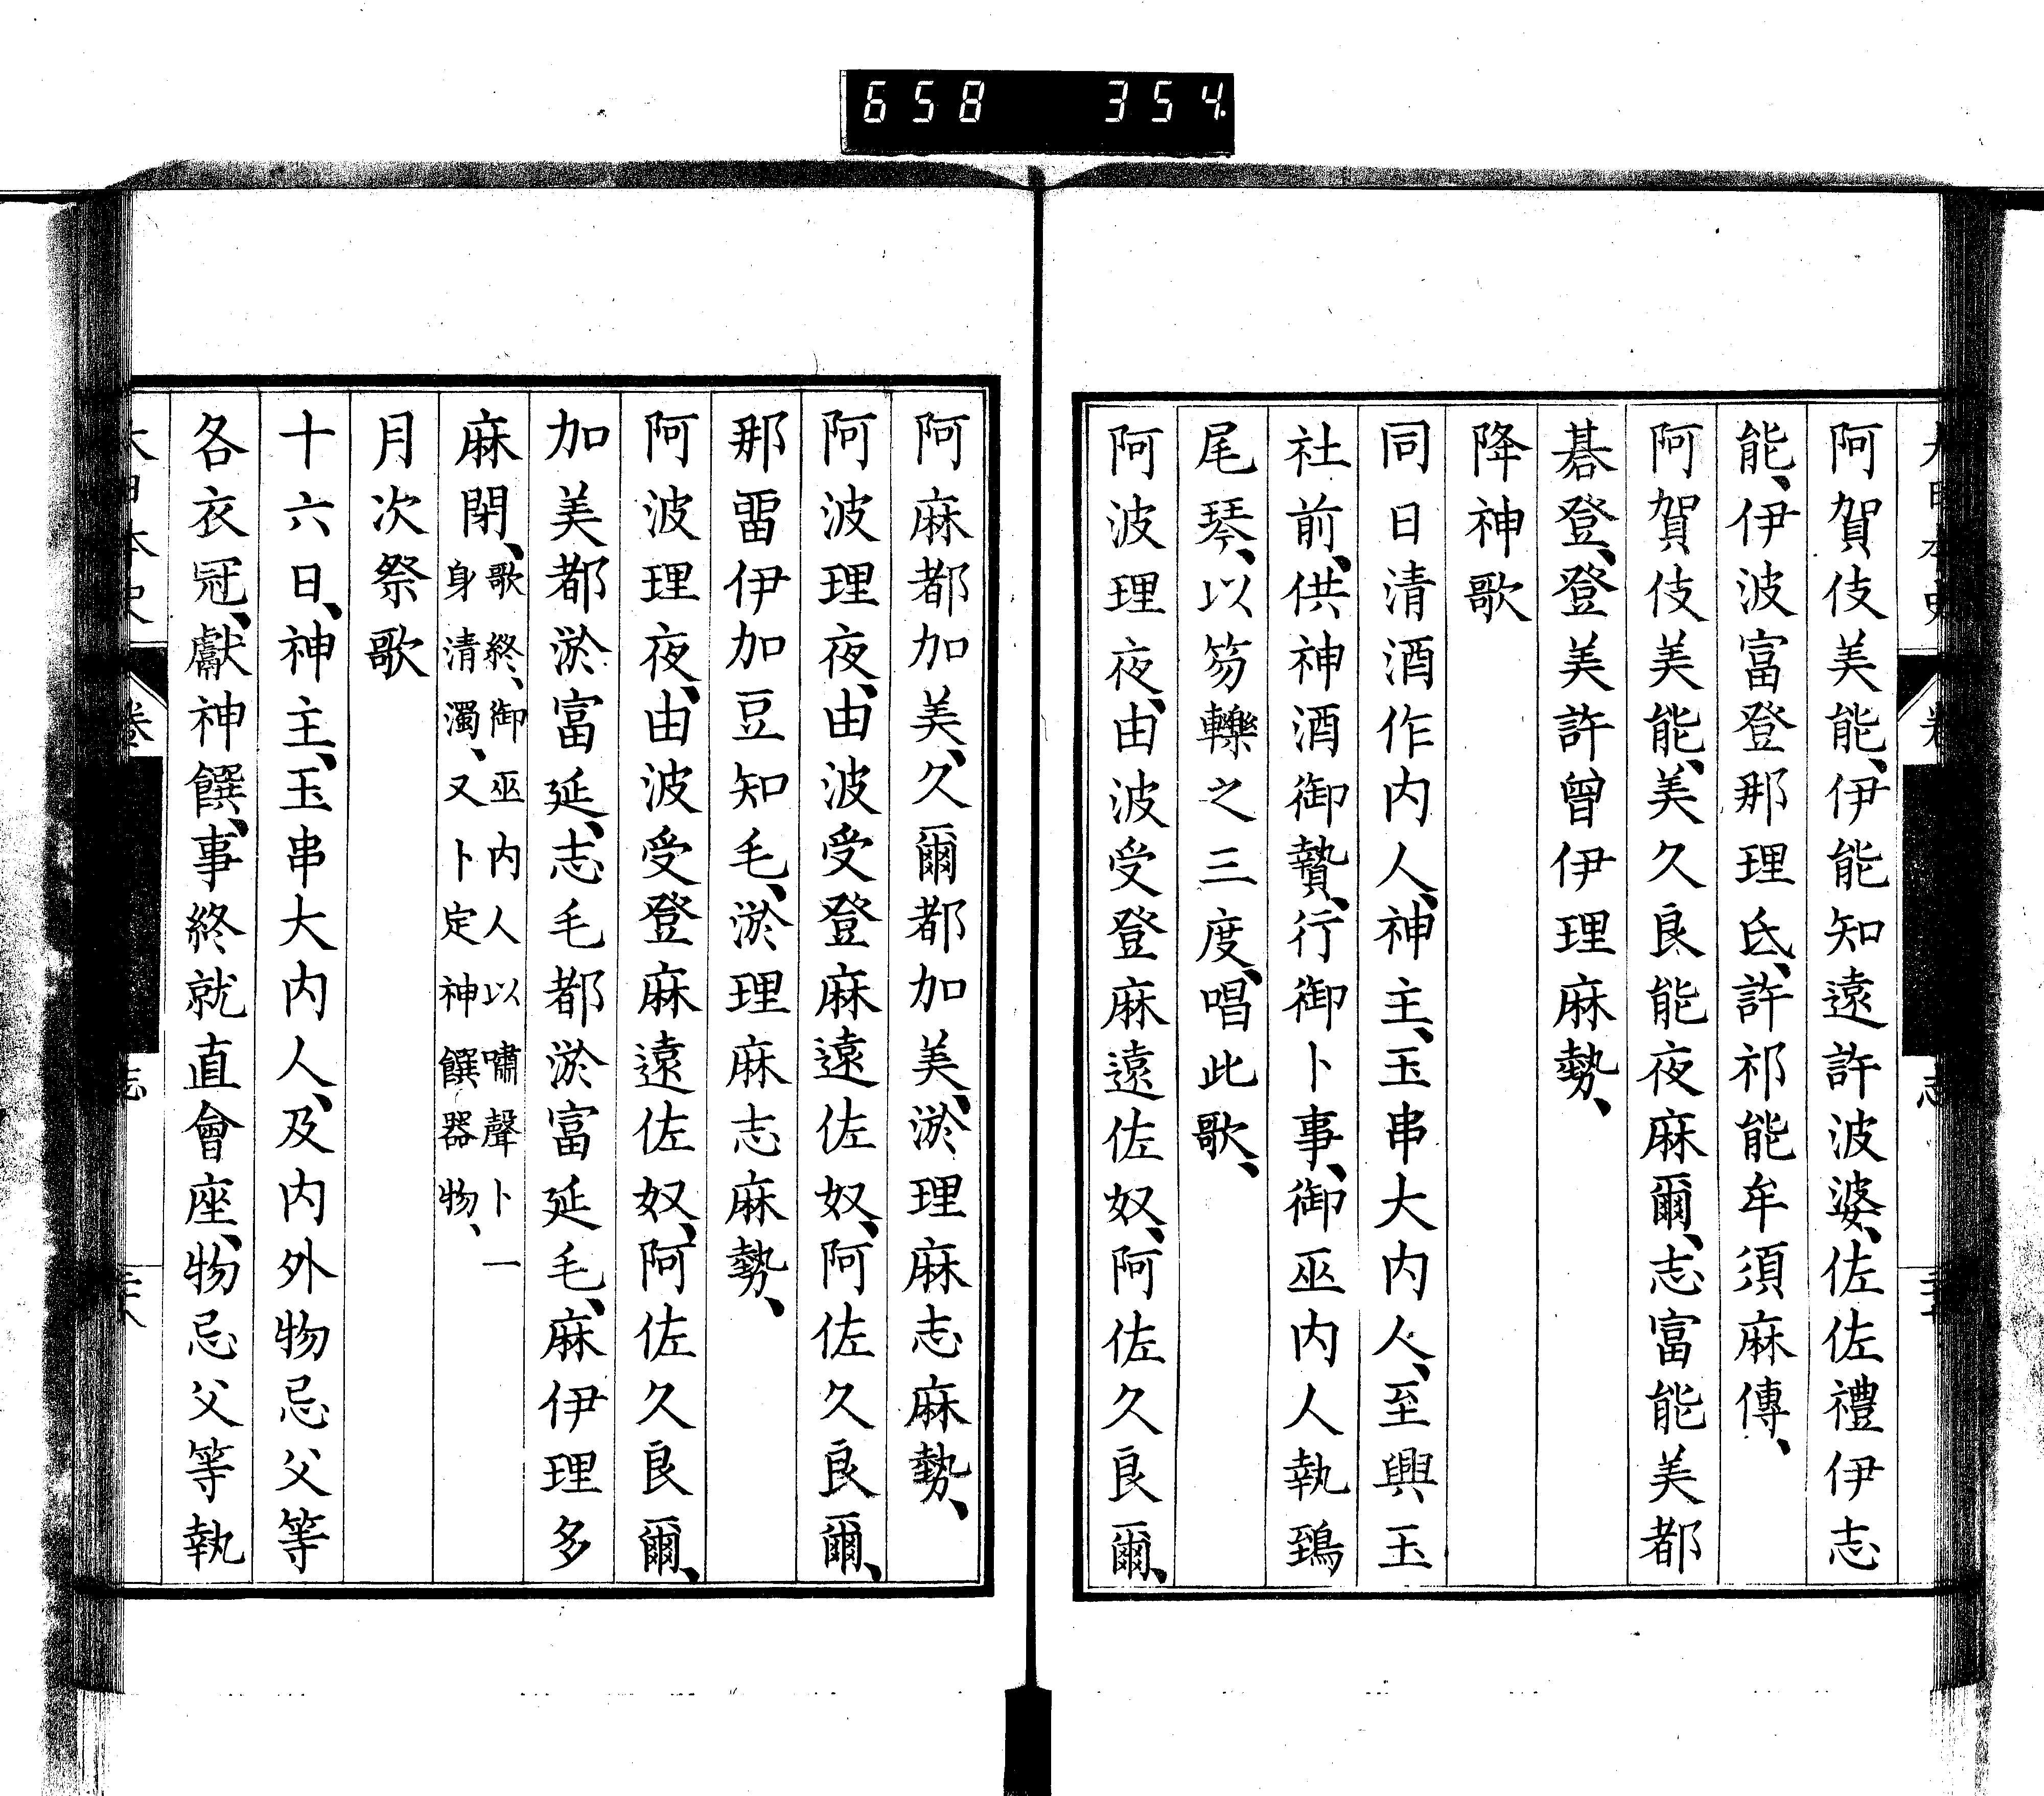 658 354
阿賀伎美能、伊能知遠許波婆、佐佐禮伊志
能、伊波富登那理氐、許祁能牟須麻傳、
阿賀伎美能、美久良能夜麻爾、志富能美都
碁登、登美許曾伊理麻勢、
降神歌
同日清酒作内人、神主、玉串大内人、至興玉
社前、供神酒御贄、行御卜事、御巫内人執鵄
尾琴、以笏轢之三度、唱此歌、
阿波理夜、由波受登麻遠佐奴、阿佐久良爾、
阿麻都加美、久爾都加美、淤理麻志麻勢、
阿波理夜、由波受登麻遠佐奴、阿佐久良爾、
那雷伊加豆知毛、淤理麻志麻勢、
阿波理夜、由波受登麻遠佐奴、阿佐久良爾、
加美都淤富延、志毛都淤富延毛、麻伊理多
麻閇、歌終、御巫内人以嘯聲卜一
身清濁、又卜定神饌器物、
月次祭歌
十六日、神主、玉串大内人、及内外物忌父等
各衣冠、獻神饌、事終就直會座、物忌父等執
大日本史 卷 志